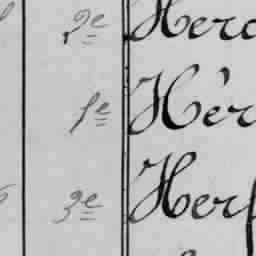 2e Herc
1e Hér
3e Herf